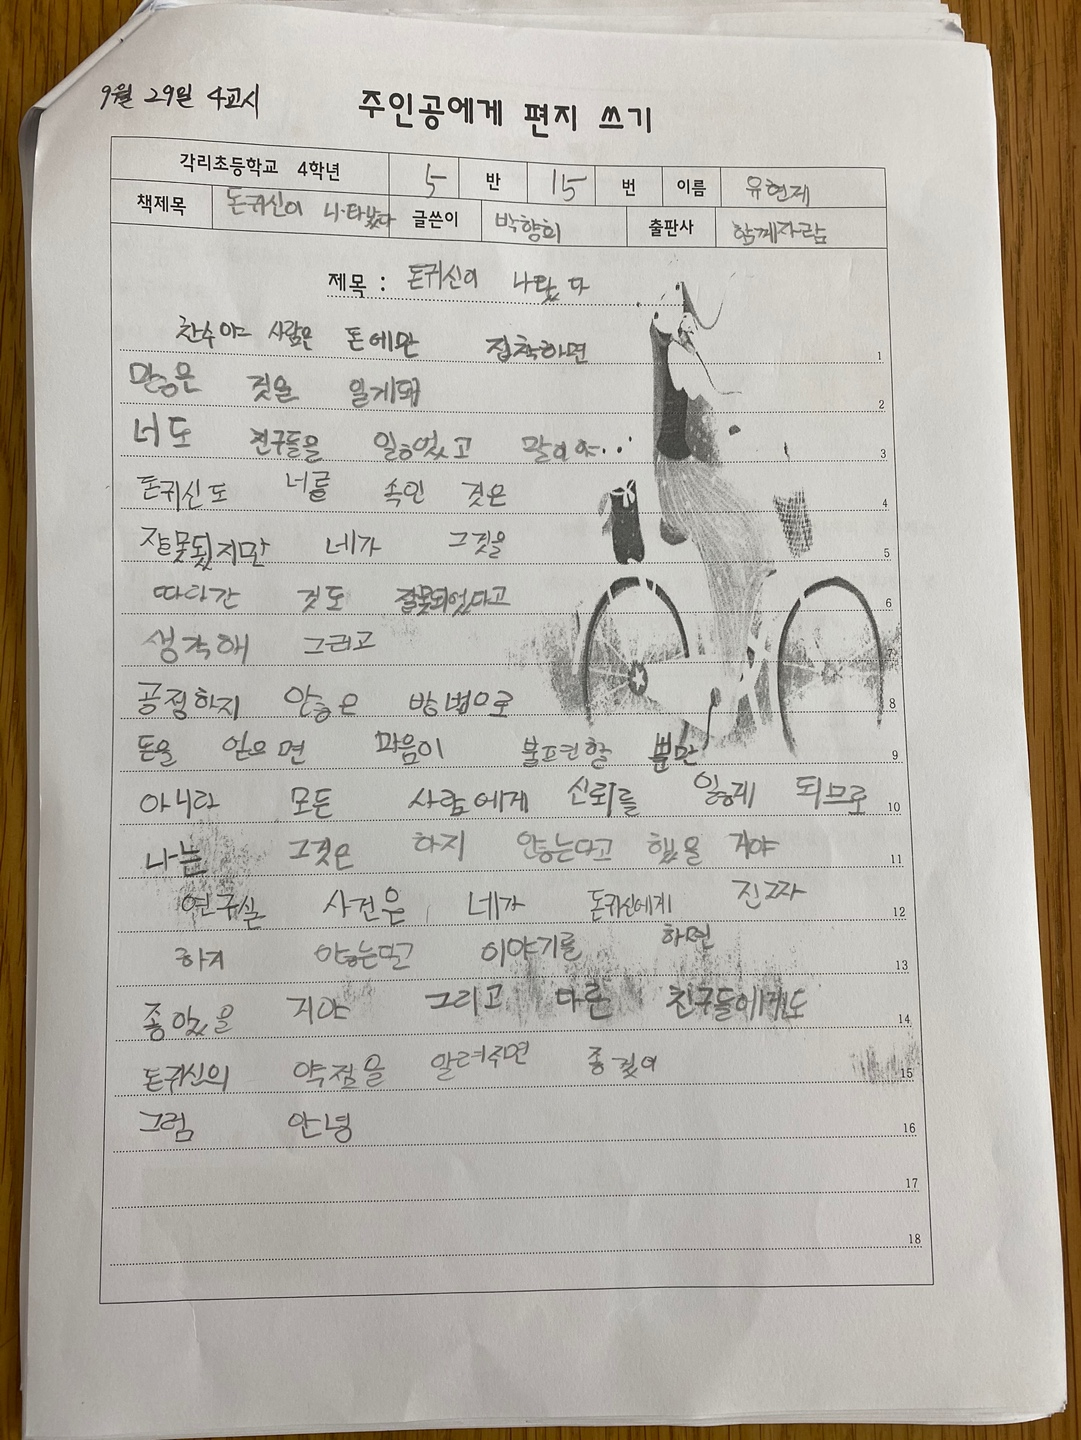 9월 29일 4교시
주인공에게 편지 쓰기
각리초등학교 4학년 5 반 15 번 이름 유현제
책제목 돈귀신이 나타났다 글쓴이 박향희 출판사 함께자람
제목 : 돈귀신이 나탔다
찬수야 사람은 돈에만 집착하면 1
많은 것을 잃게돼 2
너도 친구들을 잃었고 말이야.. 3
돈귀신도 너를 속인 것은 4
잘못됬지만 네가 그것을 5
따라간 것도 잘못되었다고 6
생각해 그리고 7
공정하지 않은 방법으로 8
돈을 얻으면 마음이 불편할 뿐만 9
아니라 모든 사람에게 신뢰를 잃게 되므로 10
나는 그것은 하지 않는다고 했을 거야 11
연구실 사건은 네가 돈귀신에게 진짜 12
하지 않는다고 이야기를 하면 13
좋았을 거야 그리고 다른 친구들에게도 14
돈귀신의 약점을 알려주면 좋겠어 15
그럼 안녕 16
17
18